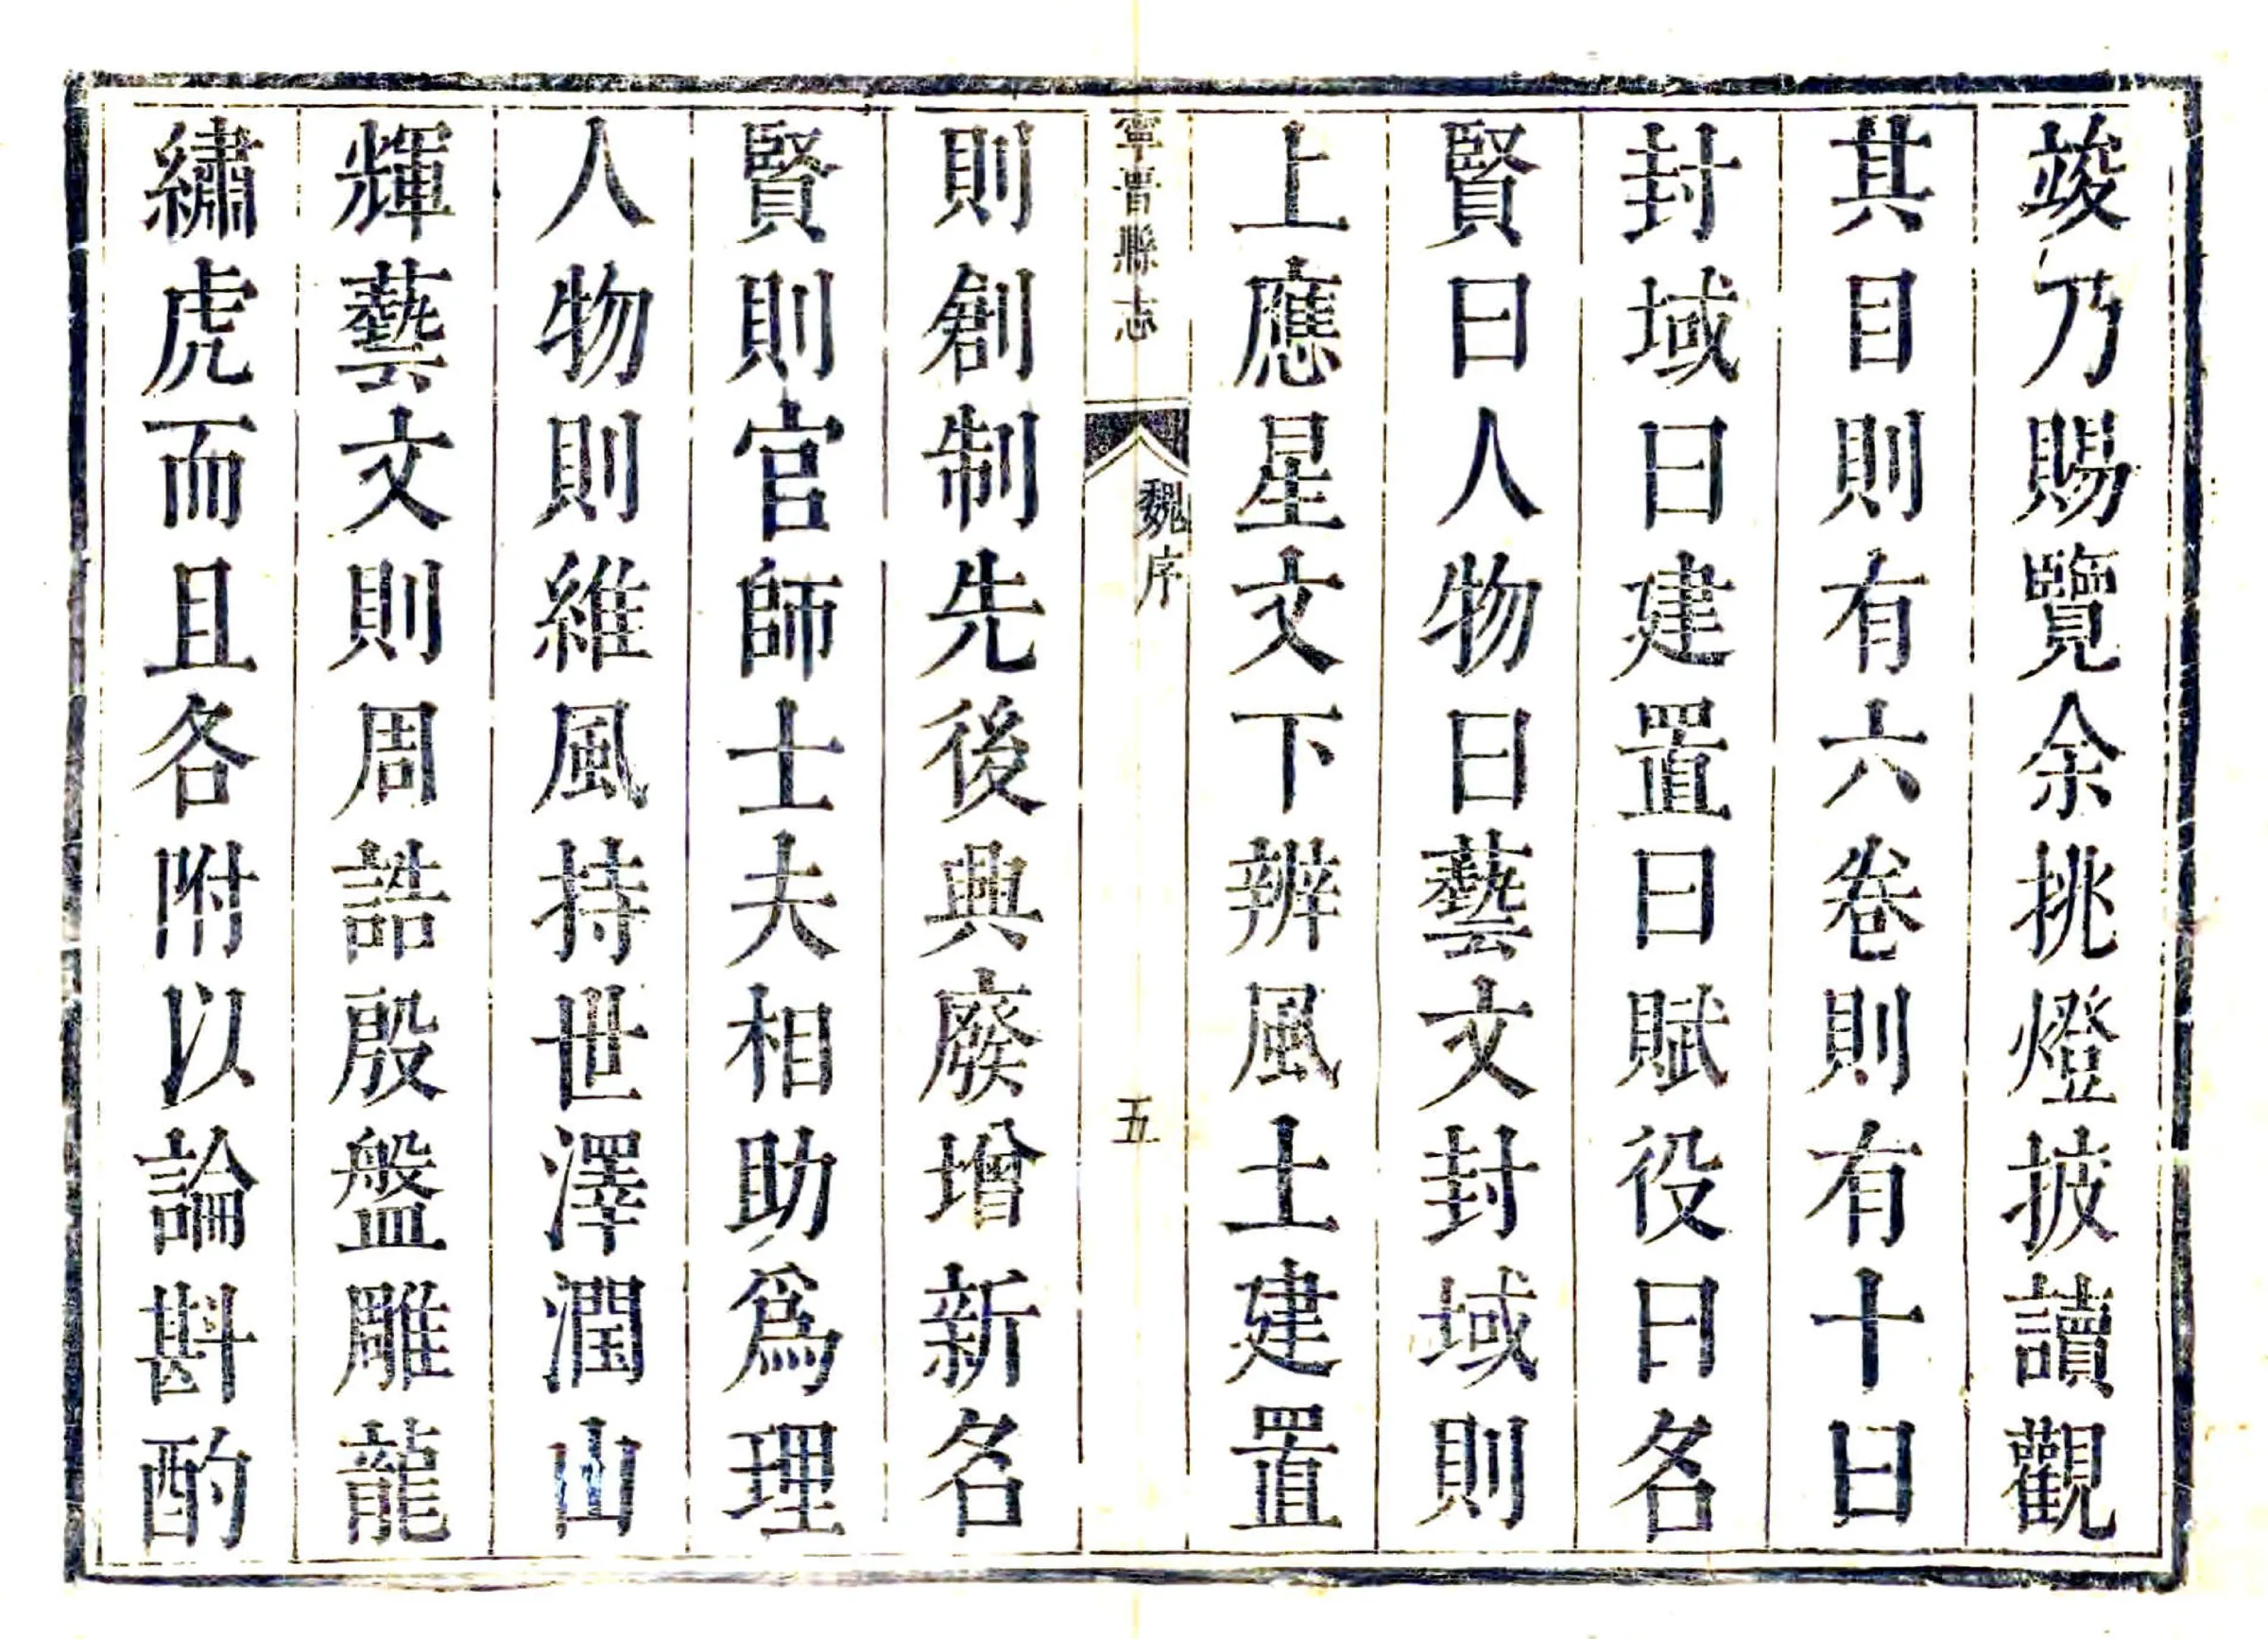 竣乃賜覽余挑燈披讀觀
其目則有六卷則有十曰
封域曰建置曰賦役曰名
賢曰人物曰藝文封域則
上應星文下辨風土建置
寧晋縣志
魏序
五
則創制先後典廢增新名
賢則官師士夫相助爲理
人物則維風持世澤潤山
輝藝文則周誥殷盤雕龍
繡虎而且各附以論斟酌